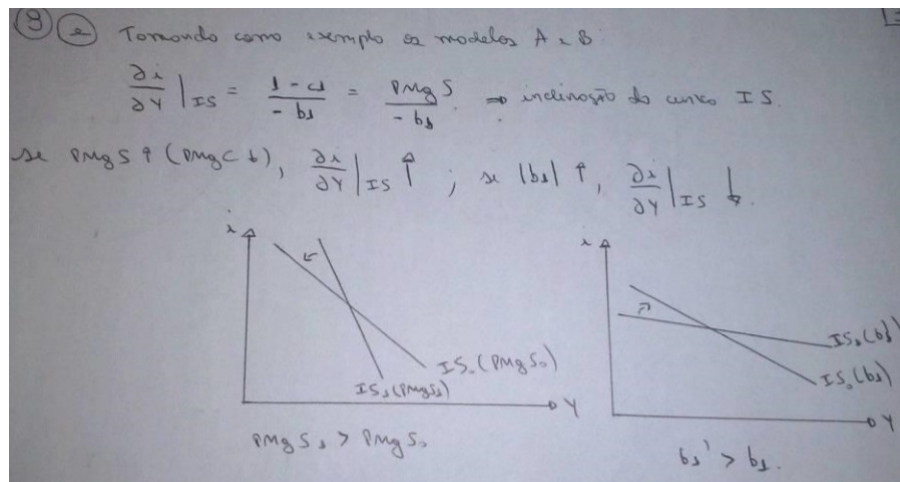 9 a Tomando como exemplo os modelos A e B:
∂i/∂Y |IS = 1 - c1 / - b1 = PMgS / - b1 ⇒ inclinação da curva IS.
se PMgS ↑ (PMgC ↓), ∂i/∂Y |IS ↑ ; se |b1| ↑, ∂i/∂Y |IS ↓.
i
i
IS1 (b1')
IS0 (PMgS0)
IS1 (PMgS1)
IS0 (b1)
Y
Y
PMgS1 > PMgS0
b1' > b1.